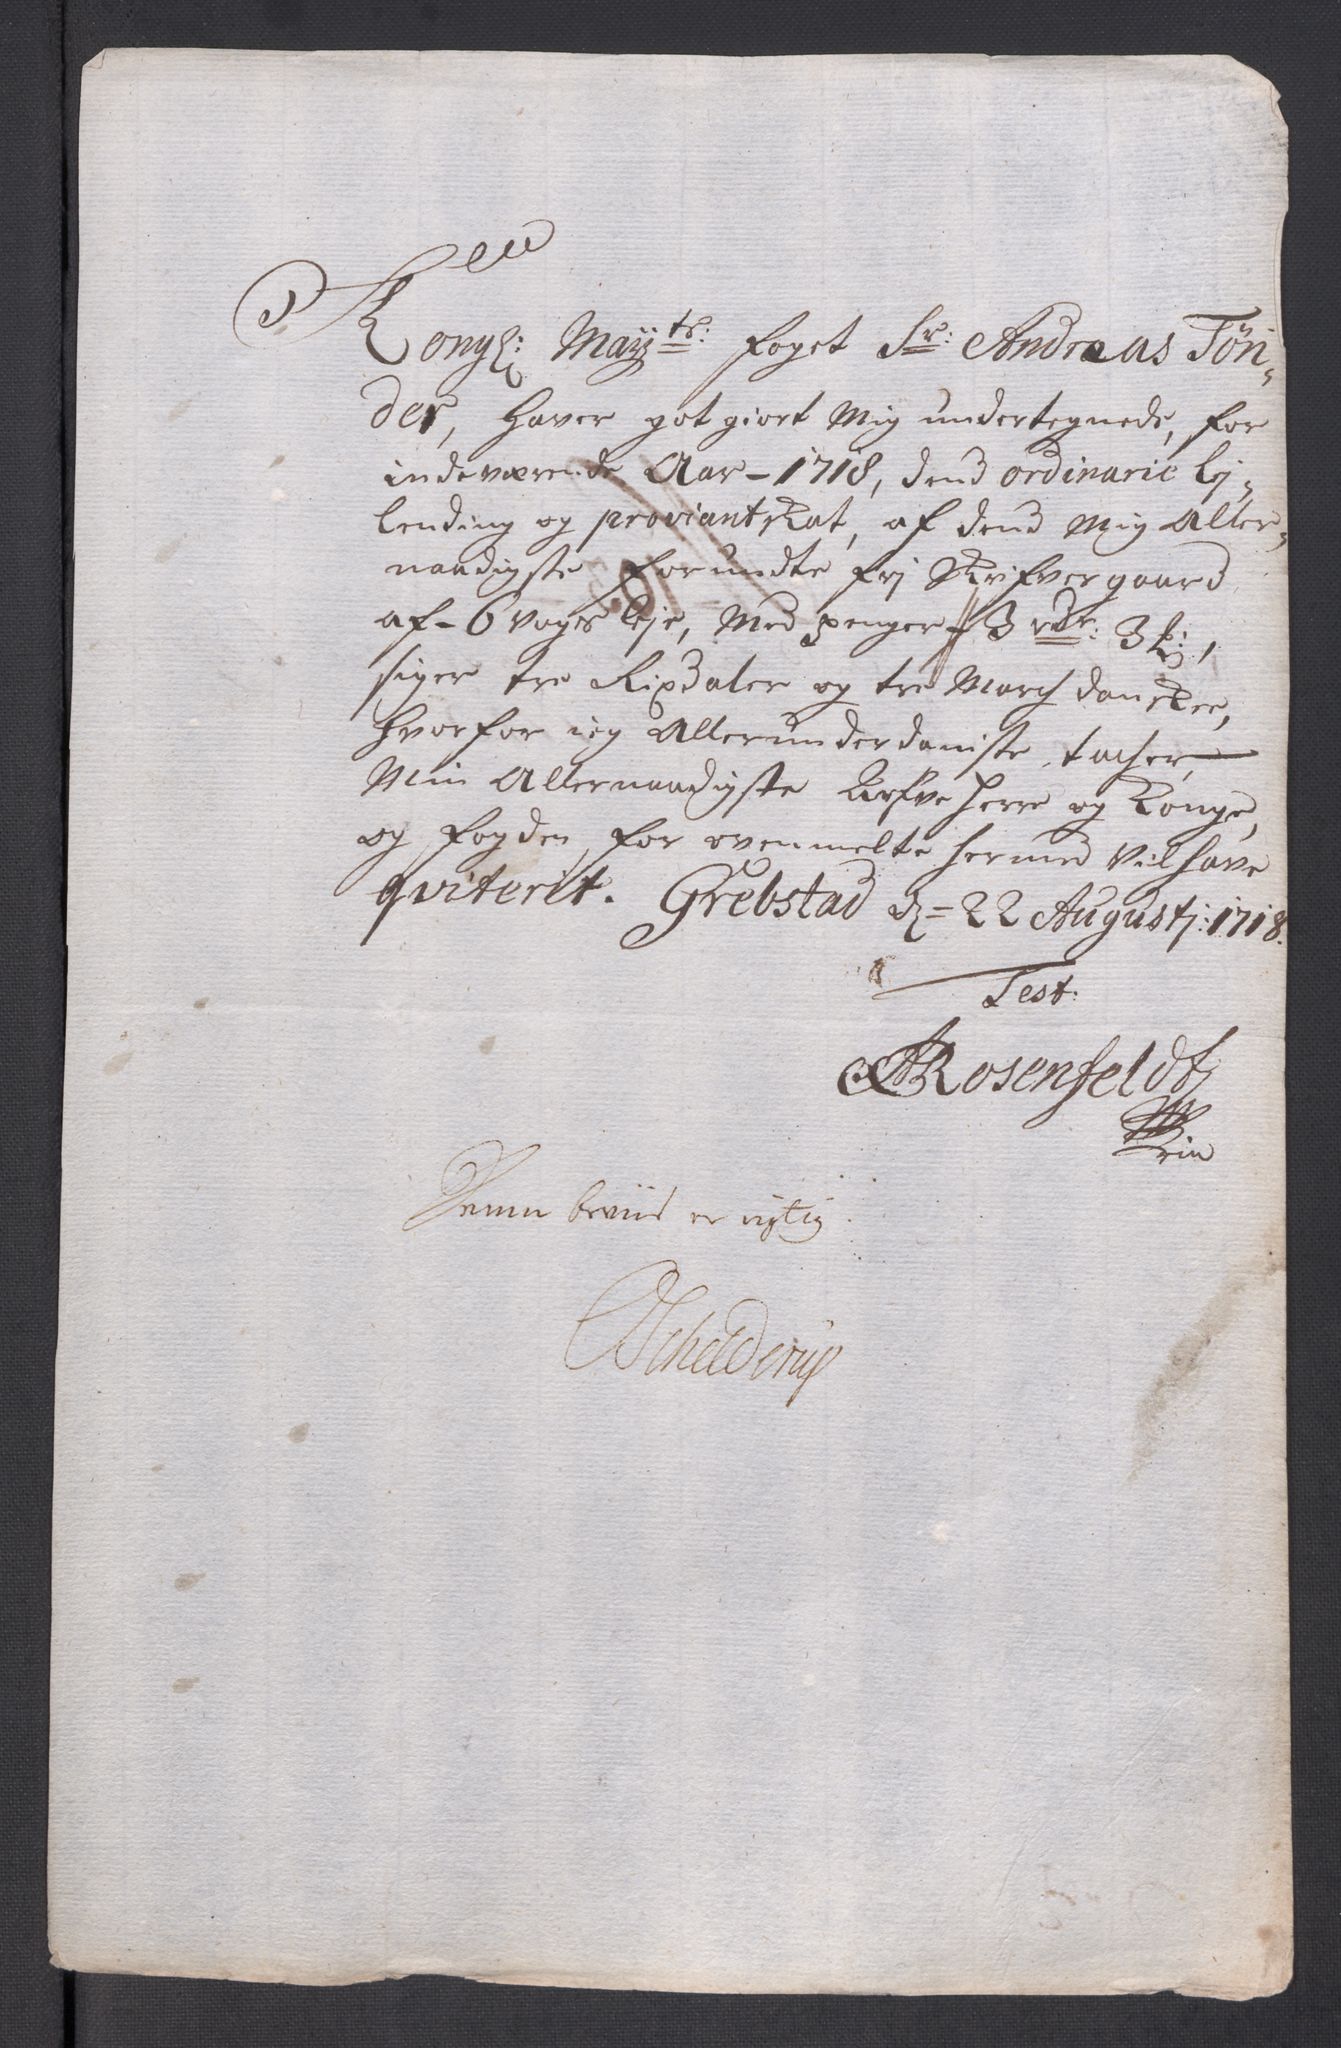 Kongl: Mayts: foget Sr: Andreas Tön-
der, haver got giort Mig undertegnede, for
indeværende Aar-1718, dend ordinarie Lej-
lending og proviantskat, af dend Mig Aller-
naadigste forundte frj Skrifvergaard
af-6 voger leje, Med penger-3 rdr: 3 ,
siger tre Rixdaler og tre March danskee,
hvorfor ieg Allerunderdaniste tacher,
Min Allernaadigste Arfve Herre og Konge,
og fogden for ovenmelte hermed vil have
qviterit. Grebstad d= 22 Augustj: 1718.
Test:
Rosenfeldt
Denne beviis er rigtig
Schelderup